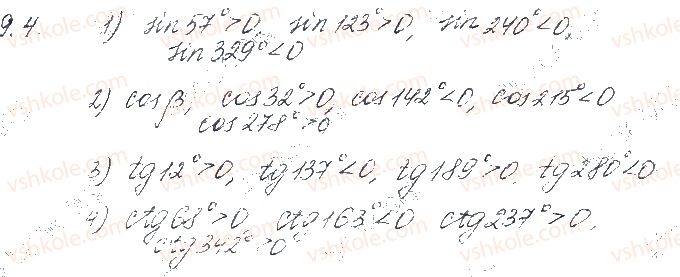 9.4. 1) sin 57°>0, sin 123°>0, sin 240°<0,
sin 329°<0
2) cos β, cos 32°>0, cos 142°<0, cos 215°<0
cos 278°>0
3) tg 12°>0, tg 137°<0, tg 189°>0, tg 280°<0
4) ctg 68°>0, ctg 163°<0 ctg 237°>0,
ctg 342°>0